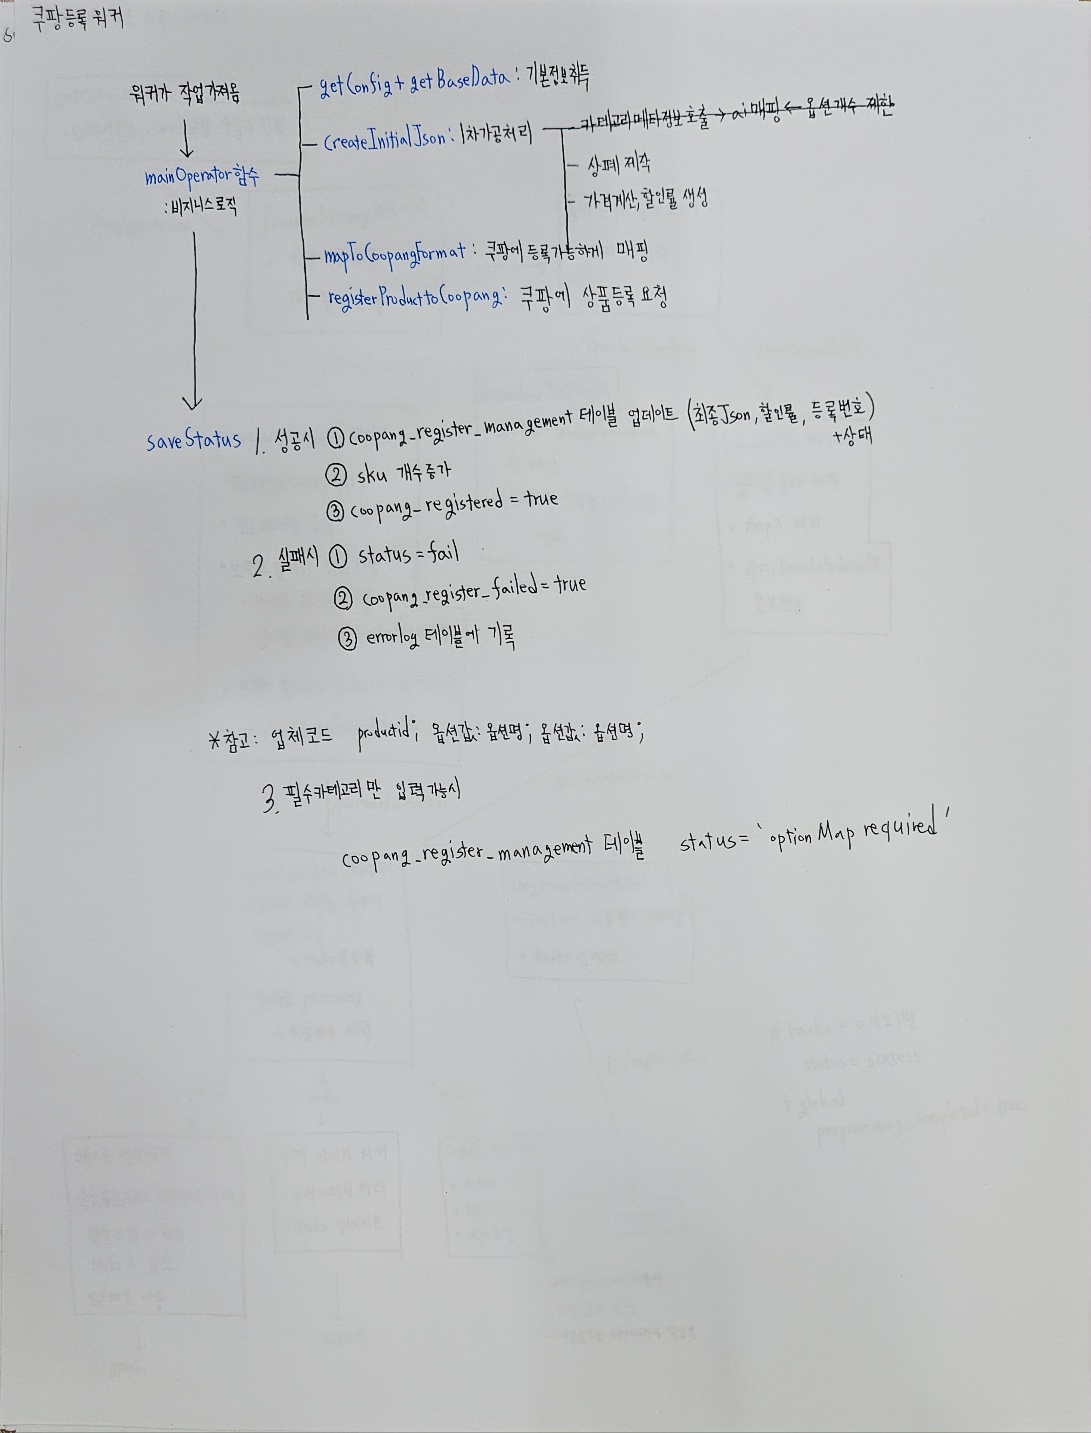 쿠팡등록 워커
워커가 작업가져옴
mainOperator함수
:비지니스로직
getConfig + getBaseData : 기본정보취득
CreateInitialJson : 1차가공처리
카테고리메타정보호출 → ai매핑 ← 옵션개수 제한
상페 제작
가격계산, 할인률 생성
mapToCoopangFormat : 쿠팡에 등록가능하게 매핑
registerProducttoCoopang : 쿠팡에 상품등록 요청
saveStatus 1. 성공시 ① coopang_register_management 테이블 업데이트 (최종Json, 할인률, 등록번호)
+상태
② sku 개수증가
③ coopang_registered = true
2. 실패시 ① status = fail
② coopang_register_failed = true
③ errorlog 테이블에 기록
※참고 : 업체코드 productid; 옵션값:옵션명; 옵션값: 옵션명;
3. 필수카테고리만 입력가능시
coopang_register_management 테이블 status = 'option Map required'